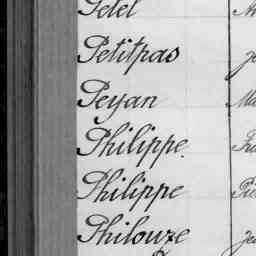 Petel
Petitpas
Peyan
Philippe.
Philippe
Philouze